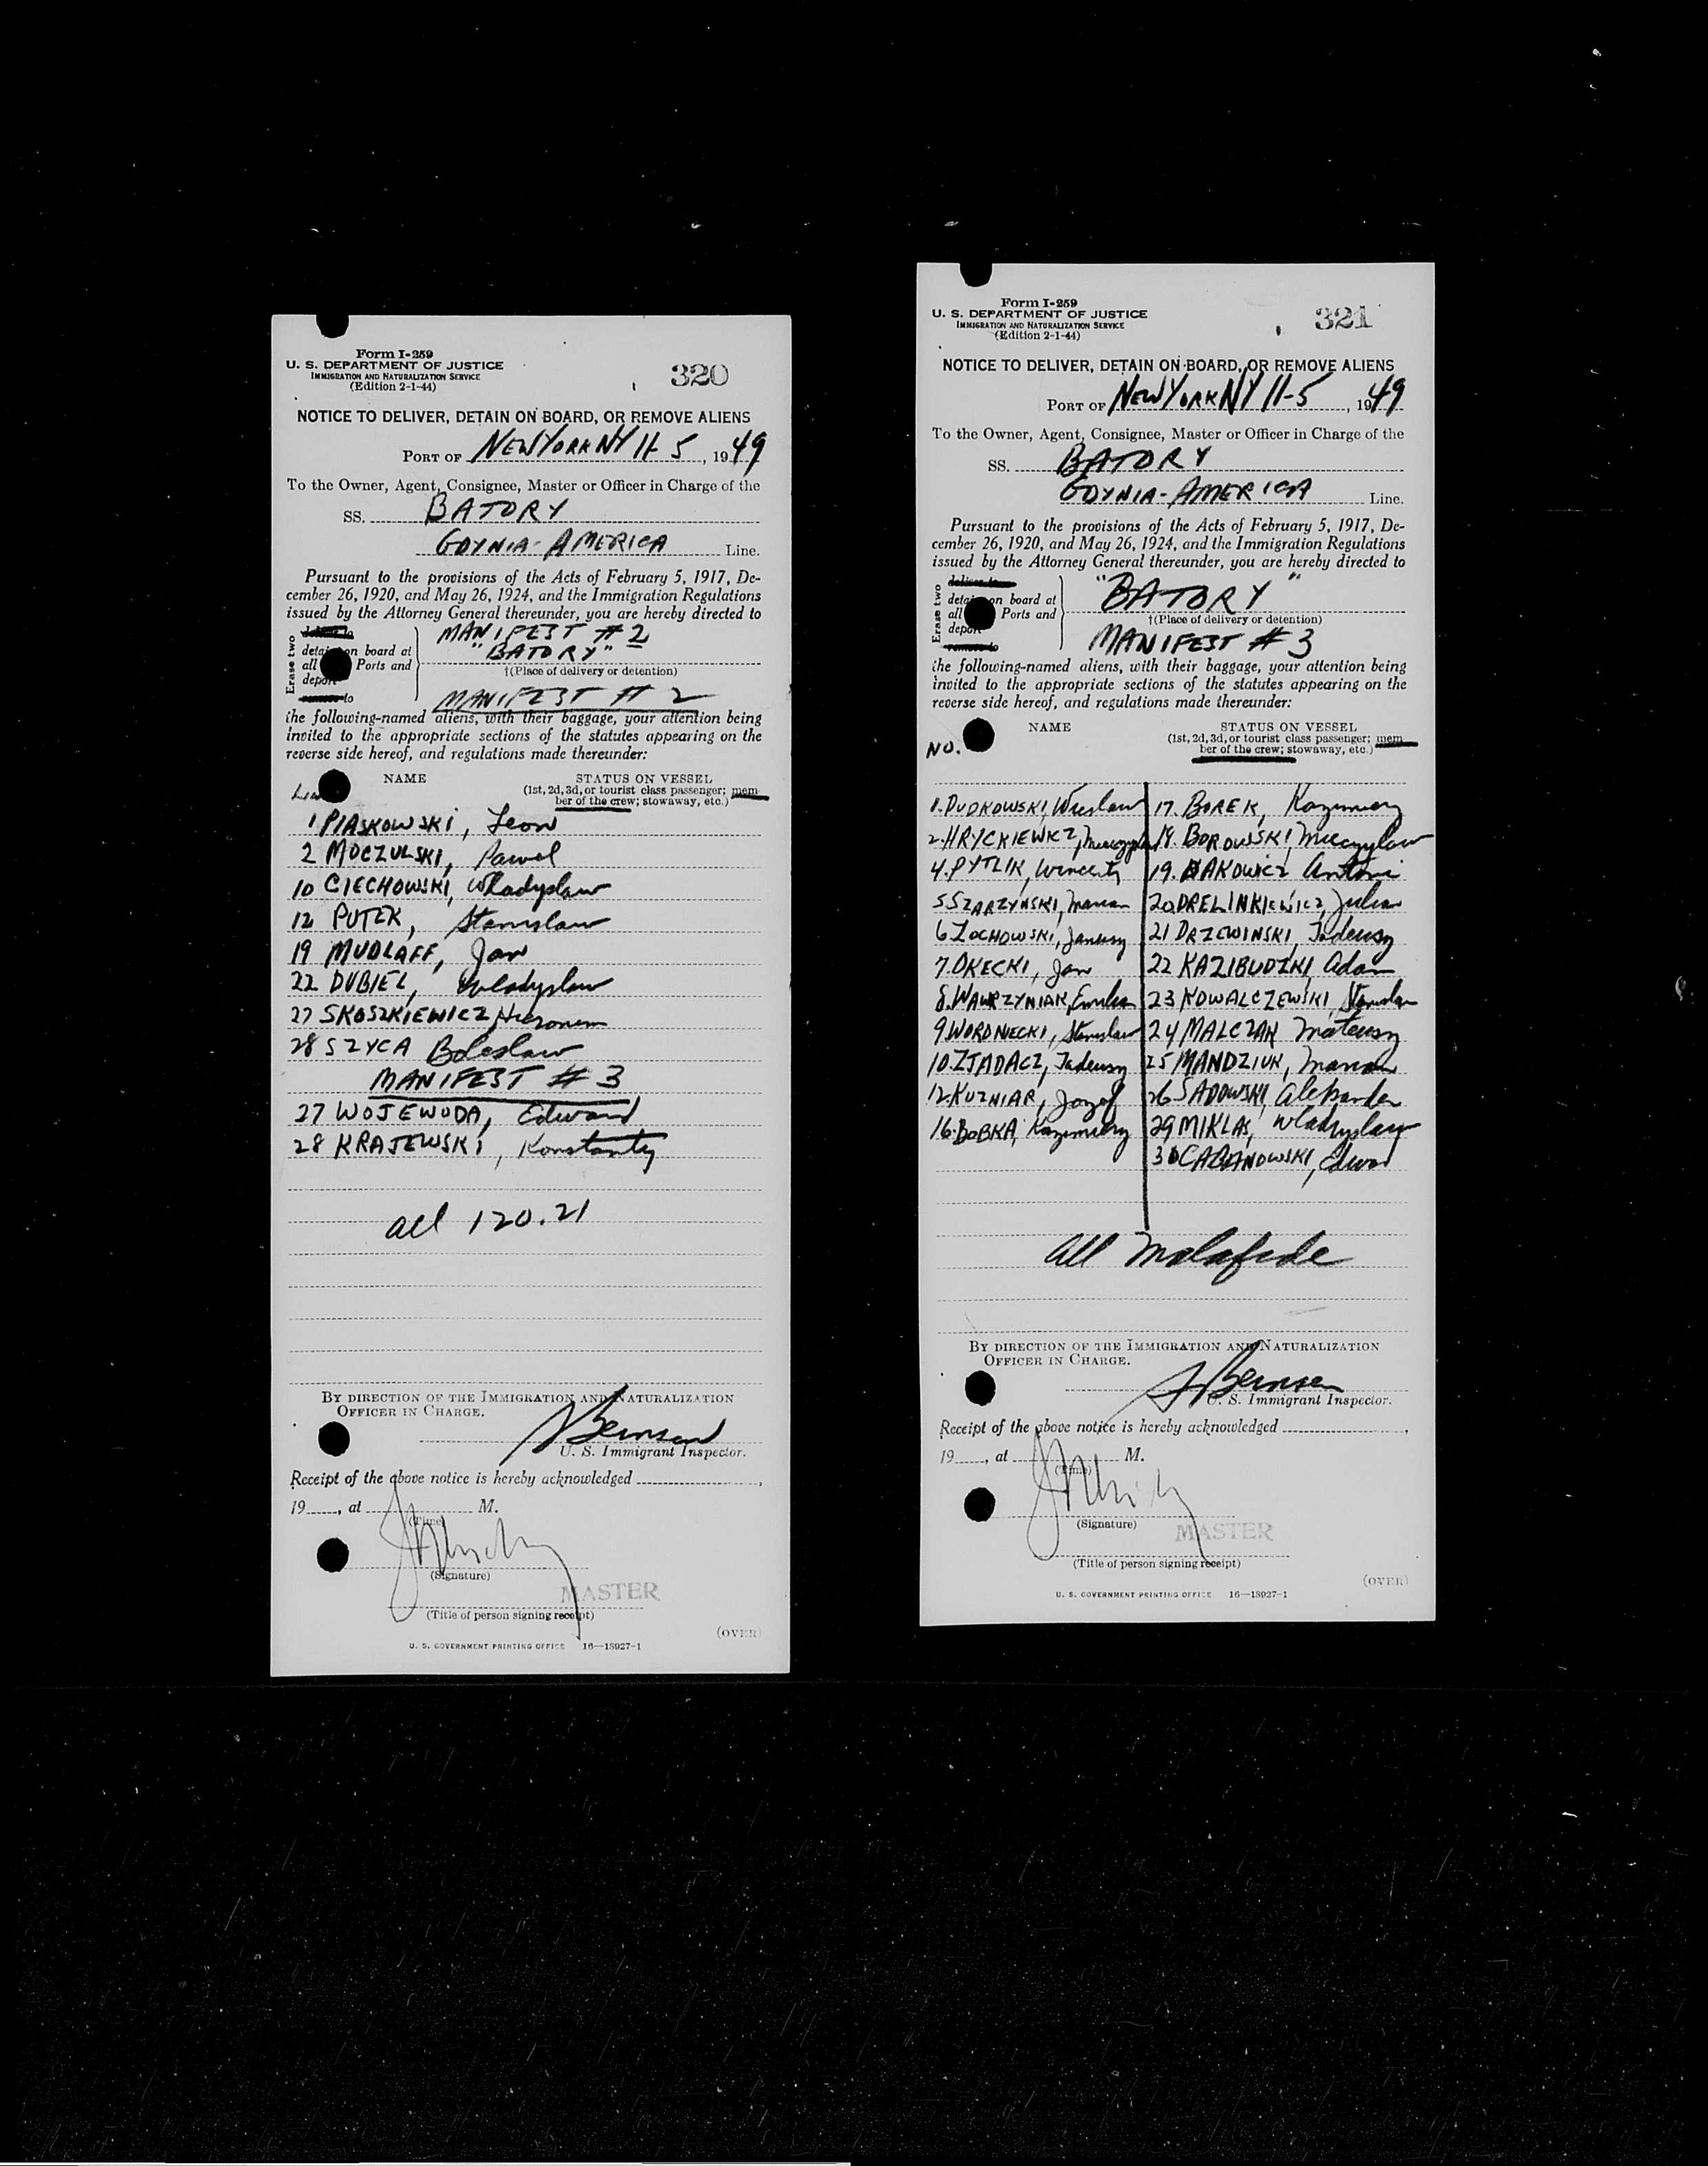 Form I-259
U. S. DEPARTMENT OF JUSTICE
IMMIGRATION AND NATURALIZATION SERVICE
(Edition 2-1-44)
320
NOTICE TO DELIVER, DETAIN ON BOARD, OR REMOVE ALIENS
PORT OF NEW YORK NY 11-5, 1949
To the Owner, Agent, Consignee, Master or Officer in Charge of the
SS. BATORY
GDYNIA-AMERICA Line.
Pursuant to the provisions of the Acts of February 5, 1917, De-
cember 26, 1920, and May 26, 1924, and the Immigration Regulations
issued by the Attorney General thereunder, you are hereby directed to
Erase two
deliver to
detain on board at
all Ports and
deport
remove to
MANIFEST #2
"BATORY"
†(Place of delivery or detention)
MANIFEST #2
the following-named aliens, with their baggage, your attention being
invited to the appropriate sections of the statutes appearing on the
reverse side hereof, and regulations made thereunder:
NAME
STATUS ON VESSEL
(1st, 2d, 3d, or tourist class passenger; mem-
ber of the crew; stowaway, etc.)
1 PIASKOWSKI, Leon
2 MOCZULSKI, Pawel
10 CIECHOWSKI, Wladyslaw
12 PUTEK, Stanislaw
19 MUDLAFF, Jan
22 DUBIEL, Wladyslaw
27 SKOSZKIEWICZ, Hieronim
28 SZYCA Boleslaw
MANIFEST #3
27 WOJEWODA, Edward
28 KRAJEWSKI, Konstanty
all 120.21
BY DIRECTION OF THE IMMIGRATION AND NATURALIZATION
OFFICER IN CHARGE.
U. S. Immigrant Inspector.
Receipt of the above notice is hereby acknowledged
19, at M.
(Time)
(Signature)
MASTER
(Title of person signing receipt)
(OVER)
U. S. GOVERNMENT PRINTING OFFICE 16—18927-1
Form I-259
U. S. DEPARTMENT OF JUSTICE
IMMIGRATION AND NATURALIZATION SERVICE
(Edition 2-1-44)
321
NOTICE TO DELIVER, DETAIN ON BOARD, OR REMOVE ALIENS
PORT OF NEW YORK NY 11-5, 1949
To the Owner, Agent, Consignee, Master or Officer in Charge of the
SS. BATORY
GDYNIA-AMERICA Line.
Pursuant to the provisions of the Acts of February 5, 1917, De-
cember 26, 1920, and May 26, 1924, and the Immigration Regulations
issued by the Attorney General thereunder, you are hereby directed to
Erase two
deliver to
detain on board at
all Ports and
deport
remove to
"BATORY"
†(Place of delivery or detention)
MANIFEST #3
the following-named aliens, with their baggage, your attention being
invited to the appropriate sections of the statutes appearing on the
reverse side hereof, and regulations made thereunder:
NO.
NAME
STATUS ON VESSEL
(1st, 2d, 3d, or tourist class passenger; mem-
ber of the crew; stowaway, etc.)
1. DUDKOWSKI, Wieslaw
2. HRYCKIEWICZ, Mieczyslaw
4. PYTLIK, Wincenty
5 SZARZYNSKI, Marian
6 ZOCHOWSKI, Janusz
7. OKECKI, Jan
8. WAWRZYNIAK, Emilian
9 WORDNIECKI, Stanislaw
10. ZJADACZ, Tadeusz
12. KUZNIAR, Jozef
16. BOBKA, Kazimierz
17. BOREK, Kazimierz
18. BOROWSKI, Mieczyslaw
19. BAKOWICZ Antoni
20 DRELINKIEWICZ, Julian
21 DRZEWINSKI, Tadeusz
22 KAZIBUDZKI, Adam
23 KOWALCZEWSKI, Stanislaw
24 MALCZAN Mateusz
25 MANDZIUK, Marian
26 SADOWSKI, Aleksander
29 MIKLAS, Wladyslaw
30 CABANOWSKI, Edward
all Malafide
BY DIRECTION OF THE IMMIGRATION AND NATURALIZATION
OFFICER IN CHARGE.
U. S. Immigrant Inspector.
Receipt of the above notice is hereby acknowledged
19, at M.
(Time)
(Signature)
MASTER
(Title of person signing receipt)
(OVER)
U. S. GOVERNMENT PRINTING OFFICE 16—18927-1